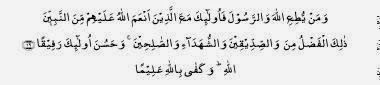 وَمَنْ يُّطِعِ اللّٰهَ وَالرَّسُوْلَ فَاُولٰٓئِكَ مَعَ الَّذِيْنَ اَنْعَمَ اللّٰهُ عَلَيْهِمْ مِّنَ النَّبِيّٖنَ
ذٰلِكَ الْفَضْلُ مِنَ وَالصِّدِّيْقِيْنَ وَالشُّهَدَآءِ وَالصّٰلِحِيْنَ ۚ وَحَسُنَ اُولٰٓئِكَ رَفِيْقًا
اللّٰهِ ؕ وَ كَفٰى بِاللّٰهِ عَلِيْمًا